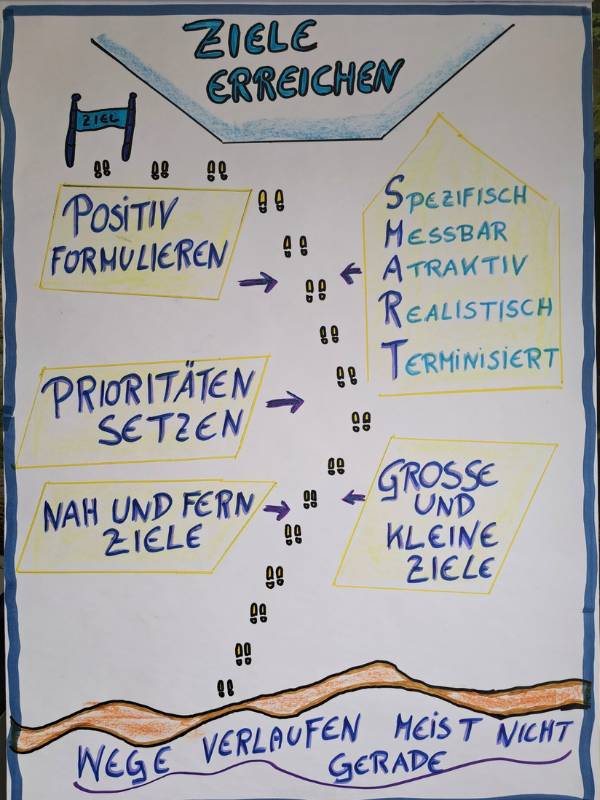 ZIELE
ERREICHEN
ZIEL
POSITIV
FORMULIEREN
SPEZIFISCH
MESSBAR
ATRAKTIV
REALISTISCH
TERMINISIERT
PRIORITÄTEN
SETZEN
NAH UND FERN
ZIELE
GROSSE
UND
KLEINE
ZIELE
WEGE VERLAUFEN MEIST NICHT
GERADE